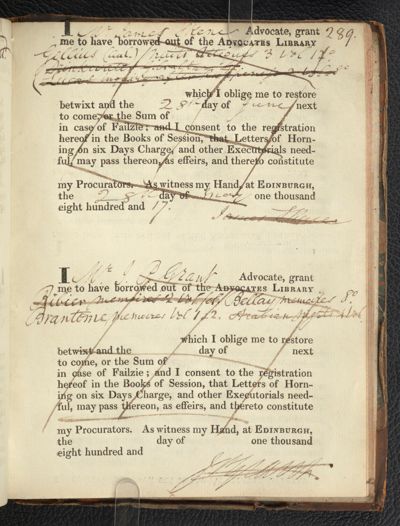 289.
I Mr James Keay Advocate, grant
me to have borrowed out of the ADVOCATES LIBRARY
3 vol
which I oblige me to restore
betwixt and the 28th day of June next
to come, or the Sum of
in case of Failzie; and I consent to the registration
hereof in the Books of Session, that Letters of Horn-
ing on six Days Charge, and other Executorials need-
ful, may pass thereon, as effeirs, and thereto constitute
my Procurators. As witness my Hand, at EDINBURGH,
the 28th day of one thousand
eight hundred and 17.
I Mr J P Grant Advocate, grant
me to have borrowed out of the ADVOCATES LIBRARY
memoires 2 vol Bellay memoires 8o
Brantome memoires vol 1, 2.
which I oblige me to restore
betwixt and the day of next
to come, or the Sum of
in case of Failzie; and I consent to the registration
hereof in the Books of Session, that Letters of Horn-
ing on six Days Charge, and other Executorials need-
ful, may pass thereon, as effeirs, and thereto constitute
my Procurators. As witness my Hand, at EDINBURGH,
the day of one thousand
eight hundred and